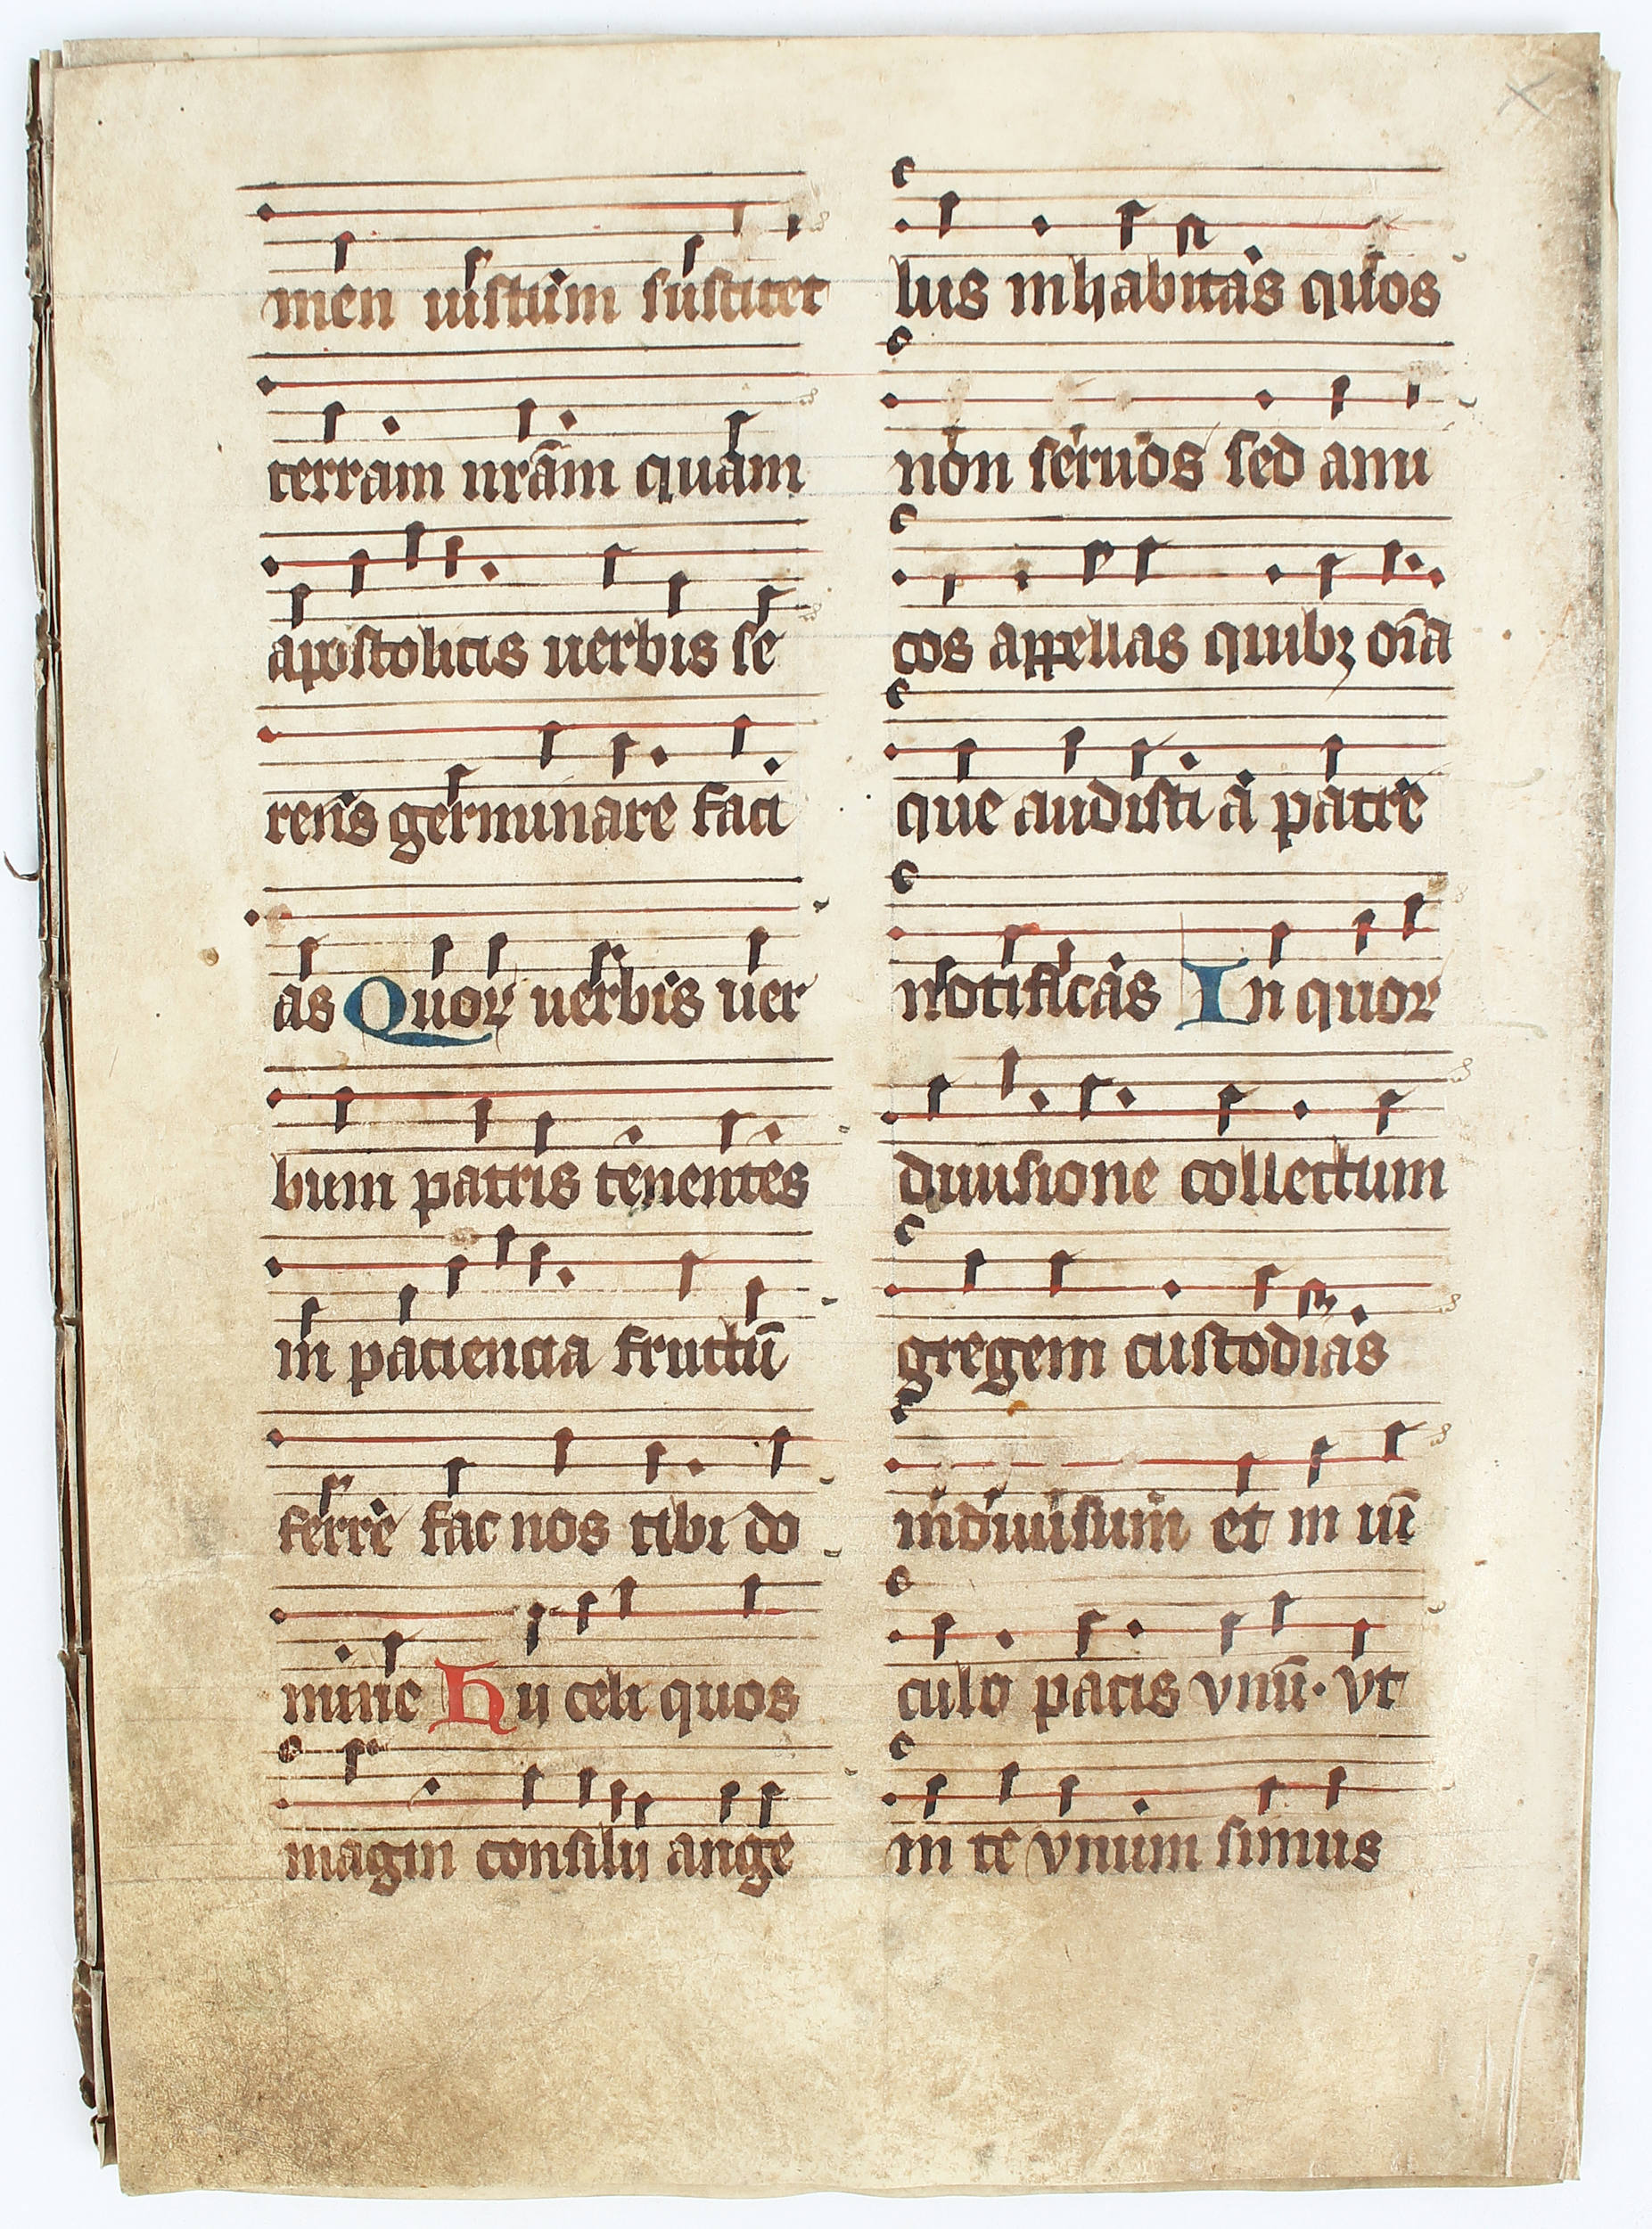 men iustum suscitet
terram nr̄am quam
apostolicis uerbis se
rens germinare faci
as Quoꝝ uerbis uer
bum patris tenentes
in paciencia fructū
ferre fac nos tibi do
mine Hij celi quos
magni consilij ange
lus inhabitas quos
non seruos sed ami
cos appellas quibꝫ oīa
que audisti a patre
notificas In quoꝝ
diuisione collectum
gregem custodias
indiuisum et in uī
culo pacis vnū· vt
in te vnum simus